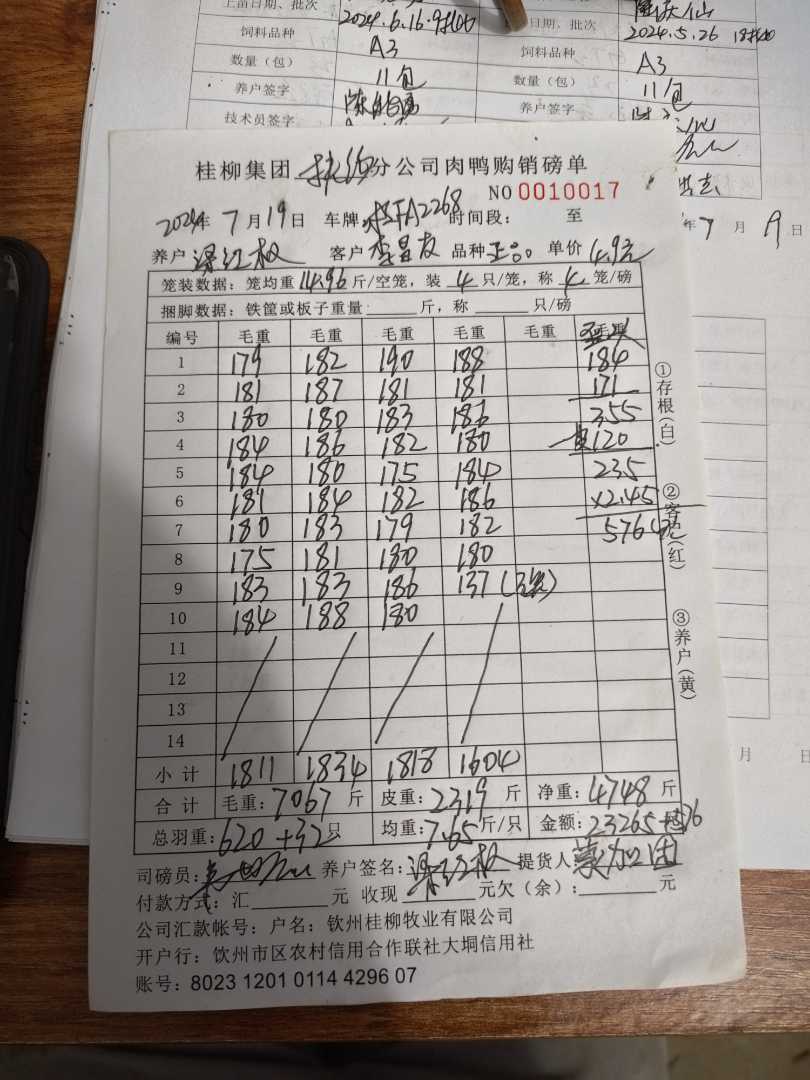 上苗日期、批次 2024.6.16. 日期、批次 2024.5.26
饲料品种 A3 饲料品种 A3
数量（包） 11包 数量（包） 11包
养户签字 养户签字
技术员签字
桂柳集团 分公司肉鸭购销磅单
NO 0010017
2024年 7月19日 车牌 A2268 时间段： 至
年7月19日
养户 客户 李昌友 品种 正品 单价 4.9元
笼装数据：笼均重14.96斤/空笼，装4只/笼，称4笼/磅
捆脚数据：铁筐或板子重量 斤，称 只/磅
编号 毛重 毛重 毛重 毛重 毛重
1 179 182 190 188 184
2 181 187 181 181 171
3 180 180 183 186 355
4 184 186 182 180 120
5 184 180 175 184 235
6 181 184 182 186 ×2.45
7 180 183 179 182 576
8 175 181 180 180
9 183 183 186 137
10 184 188 180
11
12
13
14
小计 1811 1834 1818 1604
合计 毛重：7067斤 皮重：2319斤 净重：4748斤
总羽重：620+32只 均重：7.65斤/只 金额：23265+576
①存根（白）
②客户（红）
③养户（黄）
司磅员： 养户签名： 提货人：
付款方式：汇 元 收现 元欠（余）： 元
公司汇款帐号：户名：钦州桂柳牧业有限公司
开户行：钦州市区农村信用合作联社大垌信用社
账号：8023 1201 0114 4296 07
月 日